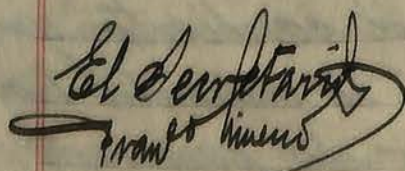 El Secretario
Franco Gimeno